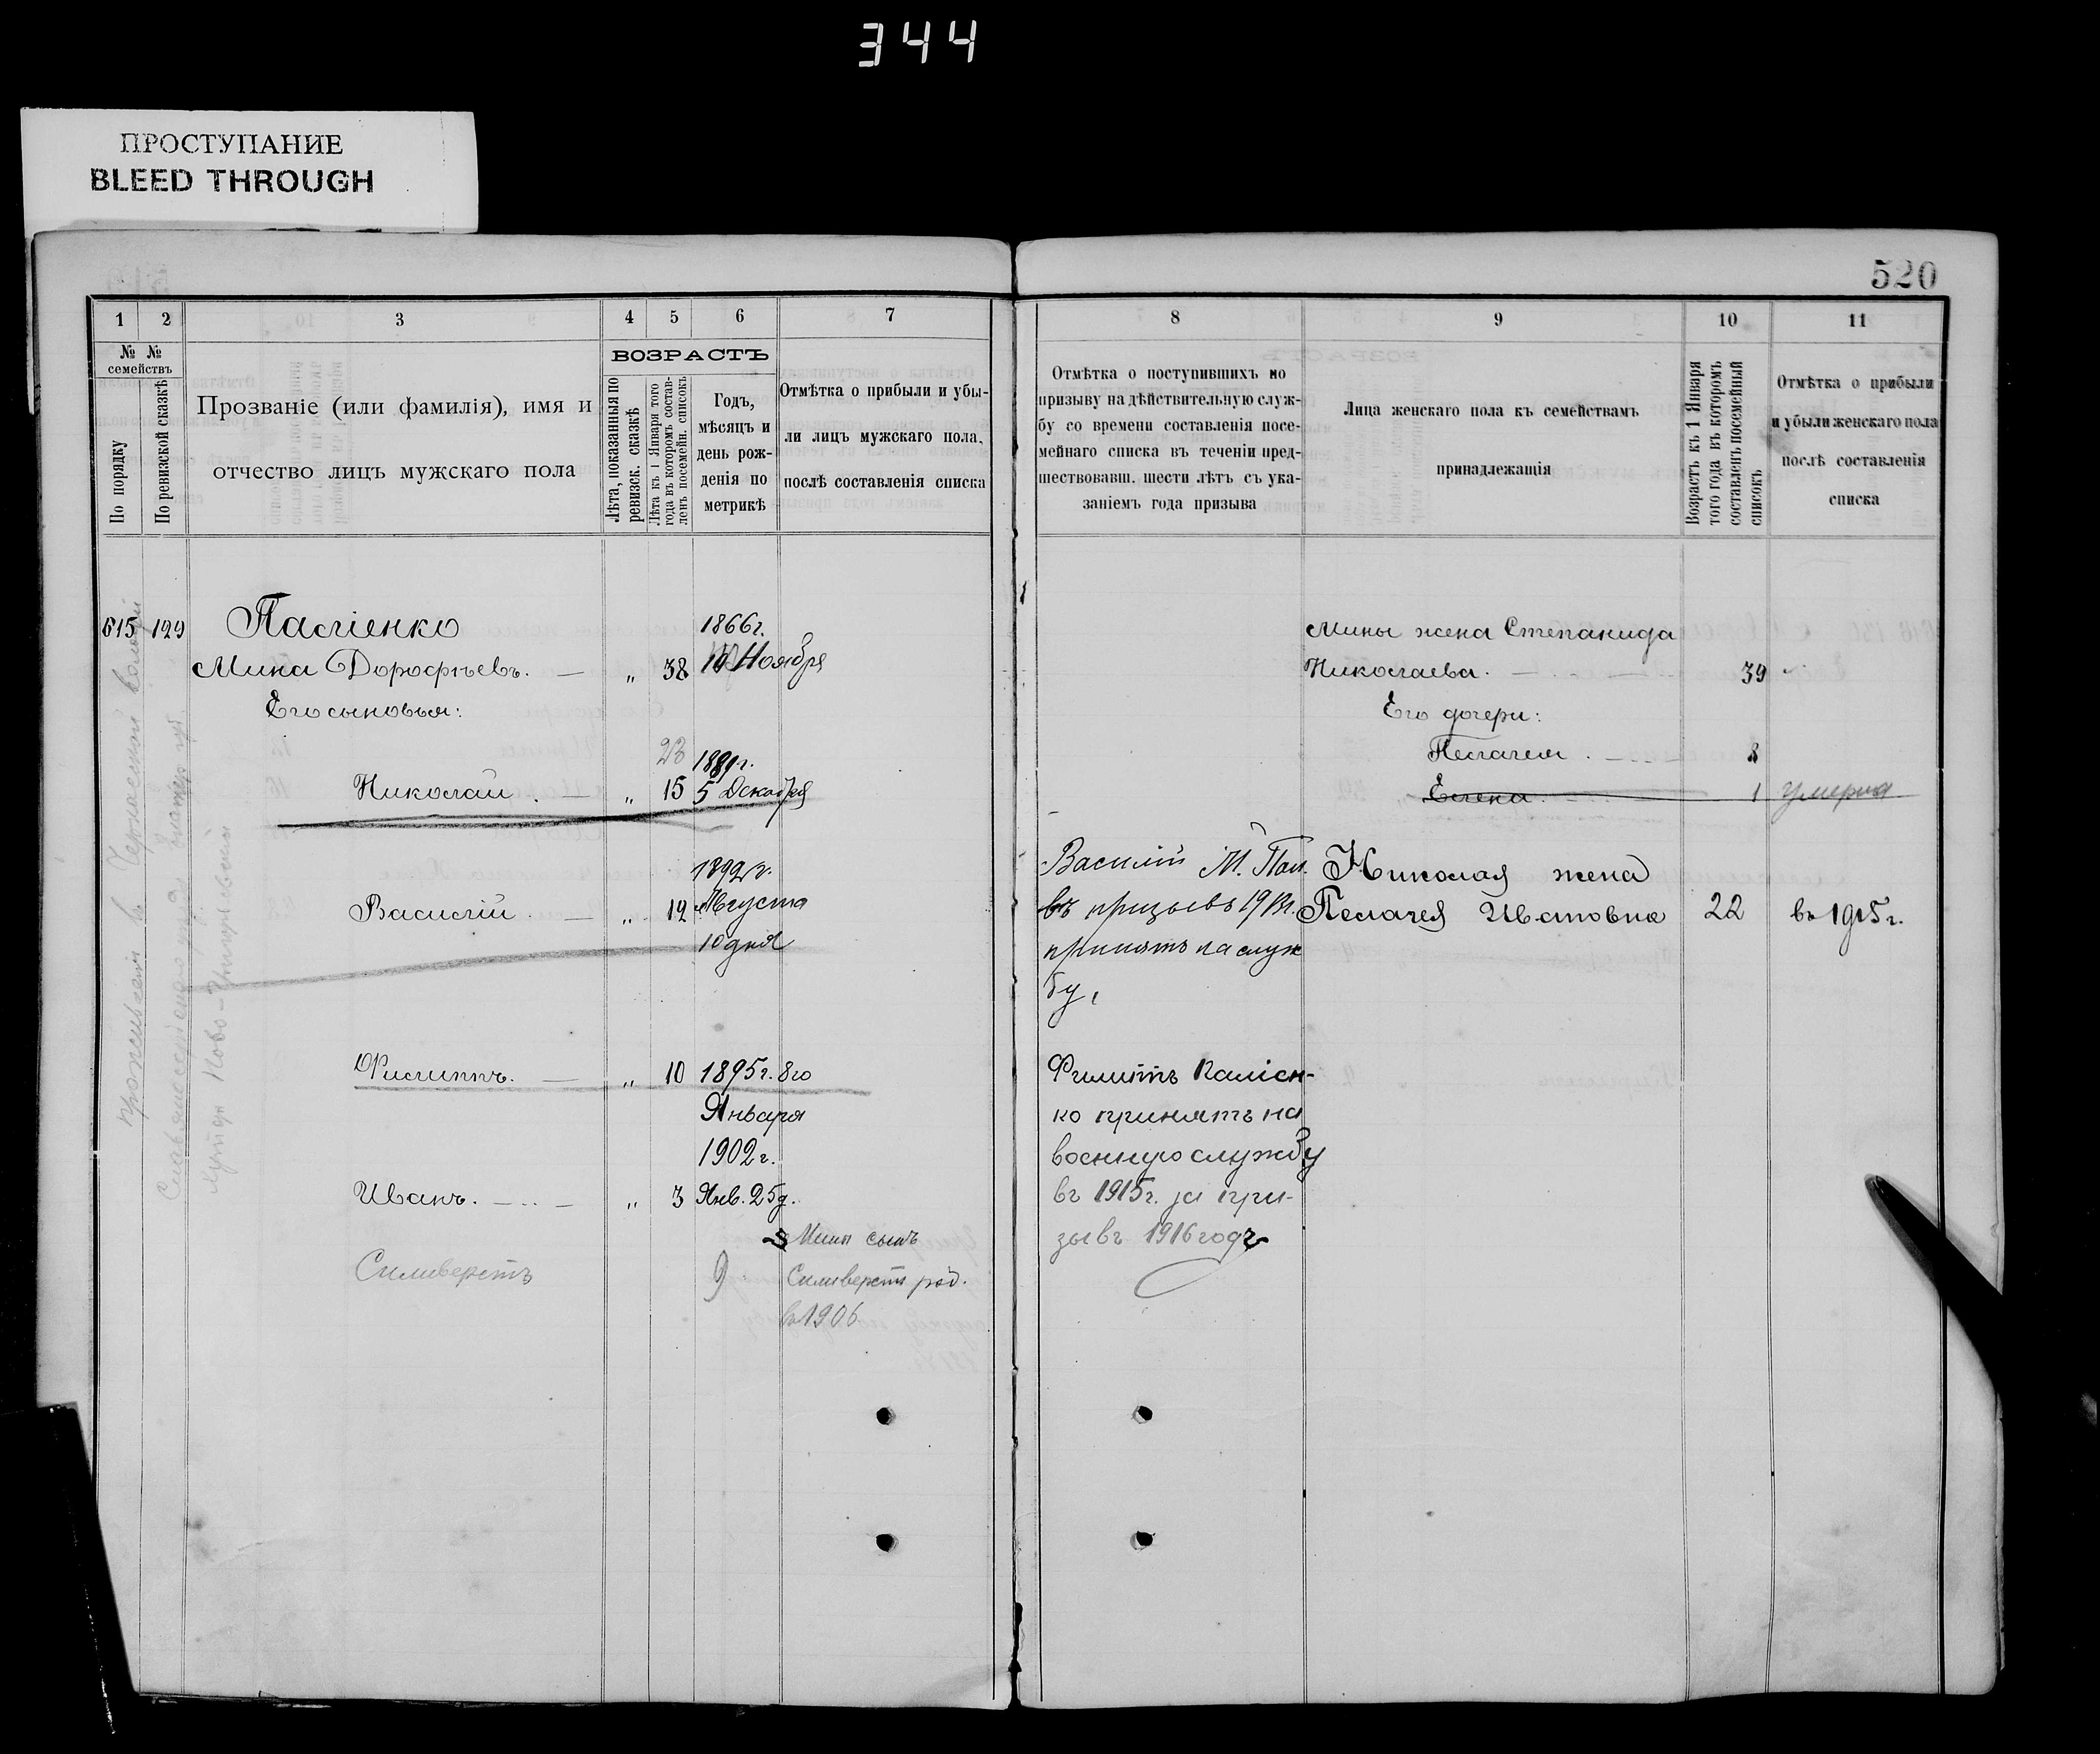 344
ПРОСТУПАНИЕ
BLEED THROUGH
520
1 2 3 4 5 6 7
№ № семействъ
По порядку
По ревизской сказкѣ
Прозваніе (или фамилія), имя и
отчество лицъ мужскаго пола
ВОЗРАСТЪ
Лѣта, показанныя по
ревизск. сказкѣ
Лѣта къ 1 Января того
года въ которомъ состав-
ленъ посемейн. списокъ
Годъ,
мѣсяцъ и
день рож-
денія по
метрикѣ
Отмѣтка о прибыли и убы-
ли лицъ мужскаго пола,
послѣ составленія списка
615 129
Мина Дорофѣевъ. — „ 38
1866г.
10 Ноября
Его сыновья:
23
Николай. — „ 15
5 Декабря
Василій. — „ 12
1892г.
Августа
10 дня
Филиппъ. — „ 10 1895г. 8го
Января
1902г.
Иванъ. — „ 3 Янв. 25д.
Мины сынъ
Силиверстъ 9 Силиверстъ род.
въ 1906
проживаетъ въ Черкасской волости
Славяносербскаго уѣзда, Екатер. губ.
хуторъ Ново-
8 9 10 11
Отмѣтка о поступившихъ по
призыву на дѣйствительную служ-
бу со времени составленія посе-
мейнаго списка въ теченіи пред-
шествовавш. шести лѣтъ съ ука-
заніемъ года призыва
Лица женскаго пола къ семействамъ
принадлежащія
Возрастъ къ 1 Января
того года въ которомъ
составленъ посемейный
списокъ
Отмѣтка о прибыли
и убыли женскаго пола
послѣ составленія
списка
Мины жена Степанида
Николаева. 39
Его дочери:
Пелагея. 8
Елена. 1 умерла
Василій М. Пал.
въ призывъ
принятъ на служ
бу,
Николая жена
Пелагея Ивановна 22 въ 1915г.
Филиппъ
ко принятъ на
военную службу
въ 1915г. за при-
зывъ 1916 года